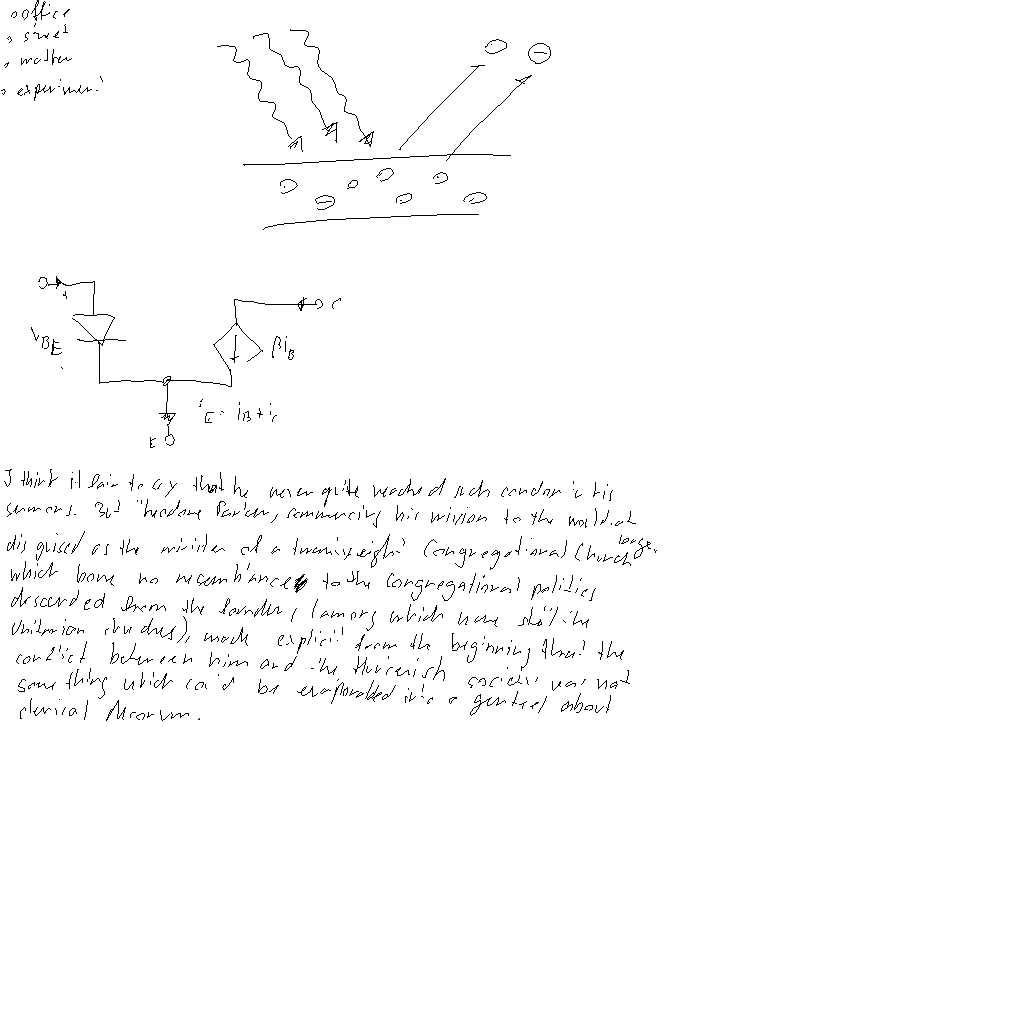 office
street
matter
experiment
C
VBE
βiB
iE = iB + ic
E
I think it fair to say that he never quite reached such candor in his
sermons. But Theodore Parker, commencing his mission to the world at
large,
disguised as the minister of a twenty-eight Congregational Church
which bore no resemblance to the Congregational polities
descended from the founders (among which were still the
Unitarian churches), made explicit from the beginning that the
conflict between him and the society was not
something which could be evaporated into a genteel about
clerical decorum.